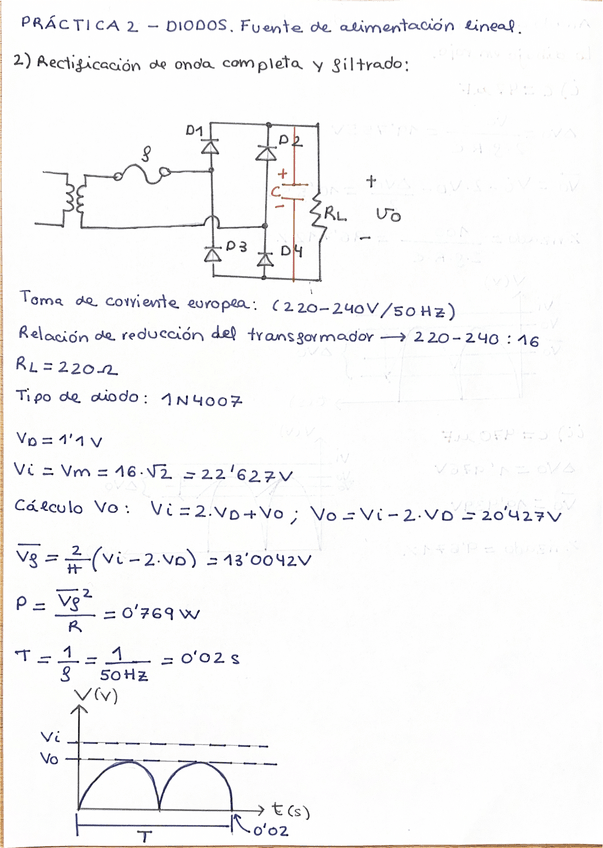 PRÁCTICA 2 - DIODOS. Fuente de alimentación lineal.
2) Rectificación de onda completa y filtrado:
D1
D2
f
+
C
-
RL
+
Vo
-
D3
D4
Toma de corriente europea: (220-240V/50Hz)
Relación de reducción del transformador → 220-240 : 16
RL = 220Ω
Tipo de diodo: 1N4007
VD = 1'1V
Vi = Vm = 16·√2 = 22'627V
Cálculo Vo: Vi = 2·VD + Vo ; Vo = Vi - 2·VD = 20'427V
Vf = 2/π (Vi - 2·VD) = 13'0042V
P = Vf²/R = 0'769W
T = 1/f = 1/50Hz = 0'02s
V(V)
Vi
Vo
t(s)
T
0'02